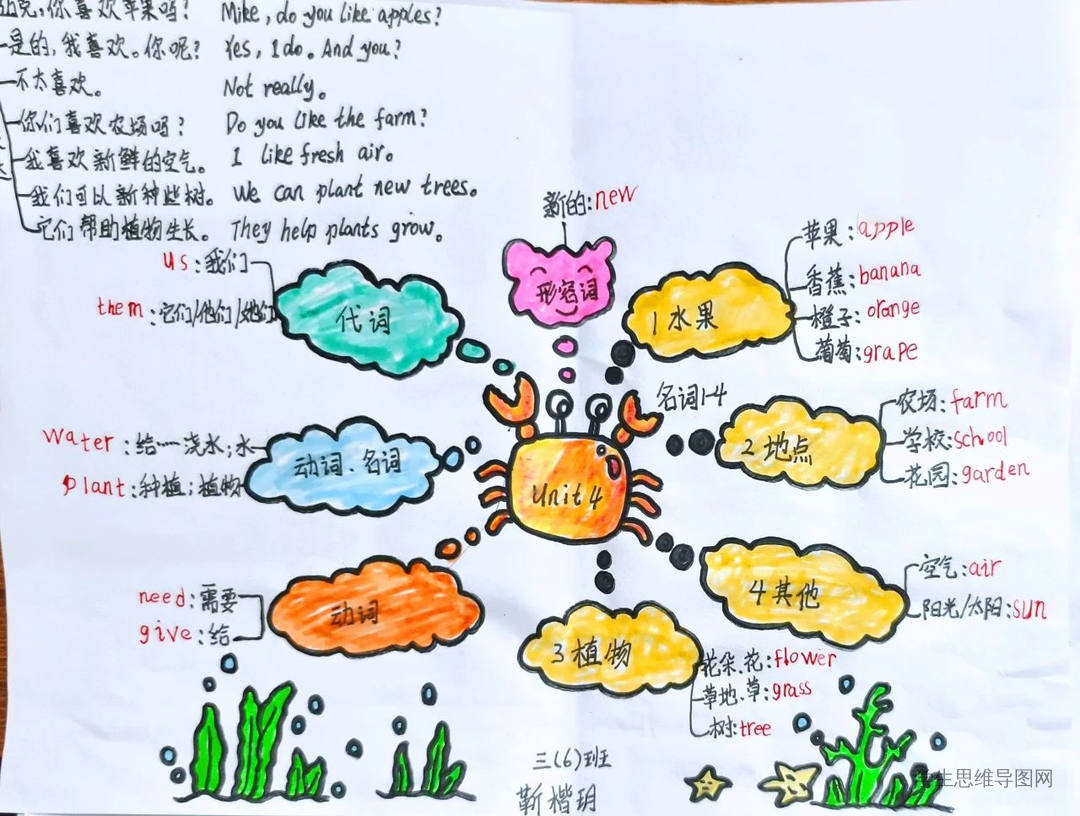 迈克,你喜欢苹果吗? Mike, do you like apples?
是的,我喜欢。你呢? Yes, I do。And you?
不太喜欢。 Not really。
你们喜欢农场吗? Do you like the farm?
我喜欢新鲜的空气。 I like fresh air。
我们可以新种些树。 We can plant new trees。
它们帮助植物生长。 They help plants grow。
新的:new
形容词
us:我们
them:它们/他们/她们
代词
1水果
苹果:apple
香蕉:banana
橙子:orange
葡萄:grape
名词1-4
water:给……浇水;水
plant:种植;植物
动词、名词
Unit 4
2地点
农场:farm
学校:school
花园:garden
need:需要
give:给
动词
3植物
花朵、花:flower
草地、草:grass
树:tree
4其他
空气:air
阳光/太阳:sun
三(6)班
靳楷玥
生思维导图网